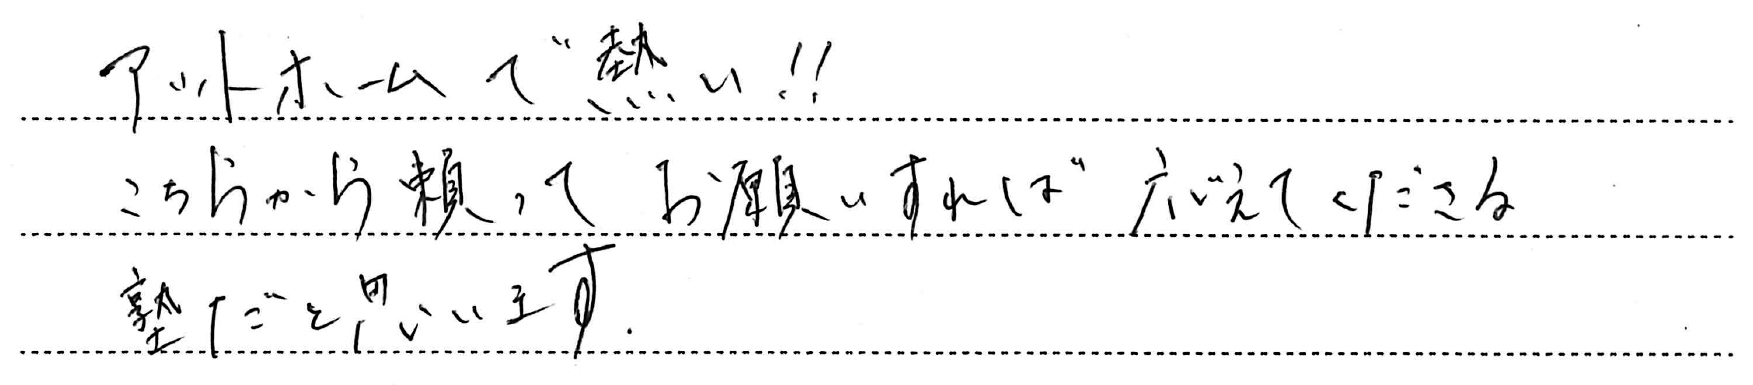 アットホームで熱い!!
こちらから頼ってお願いすれば応えてくださる
塾だと思います.